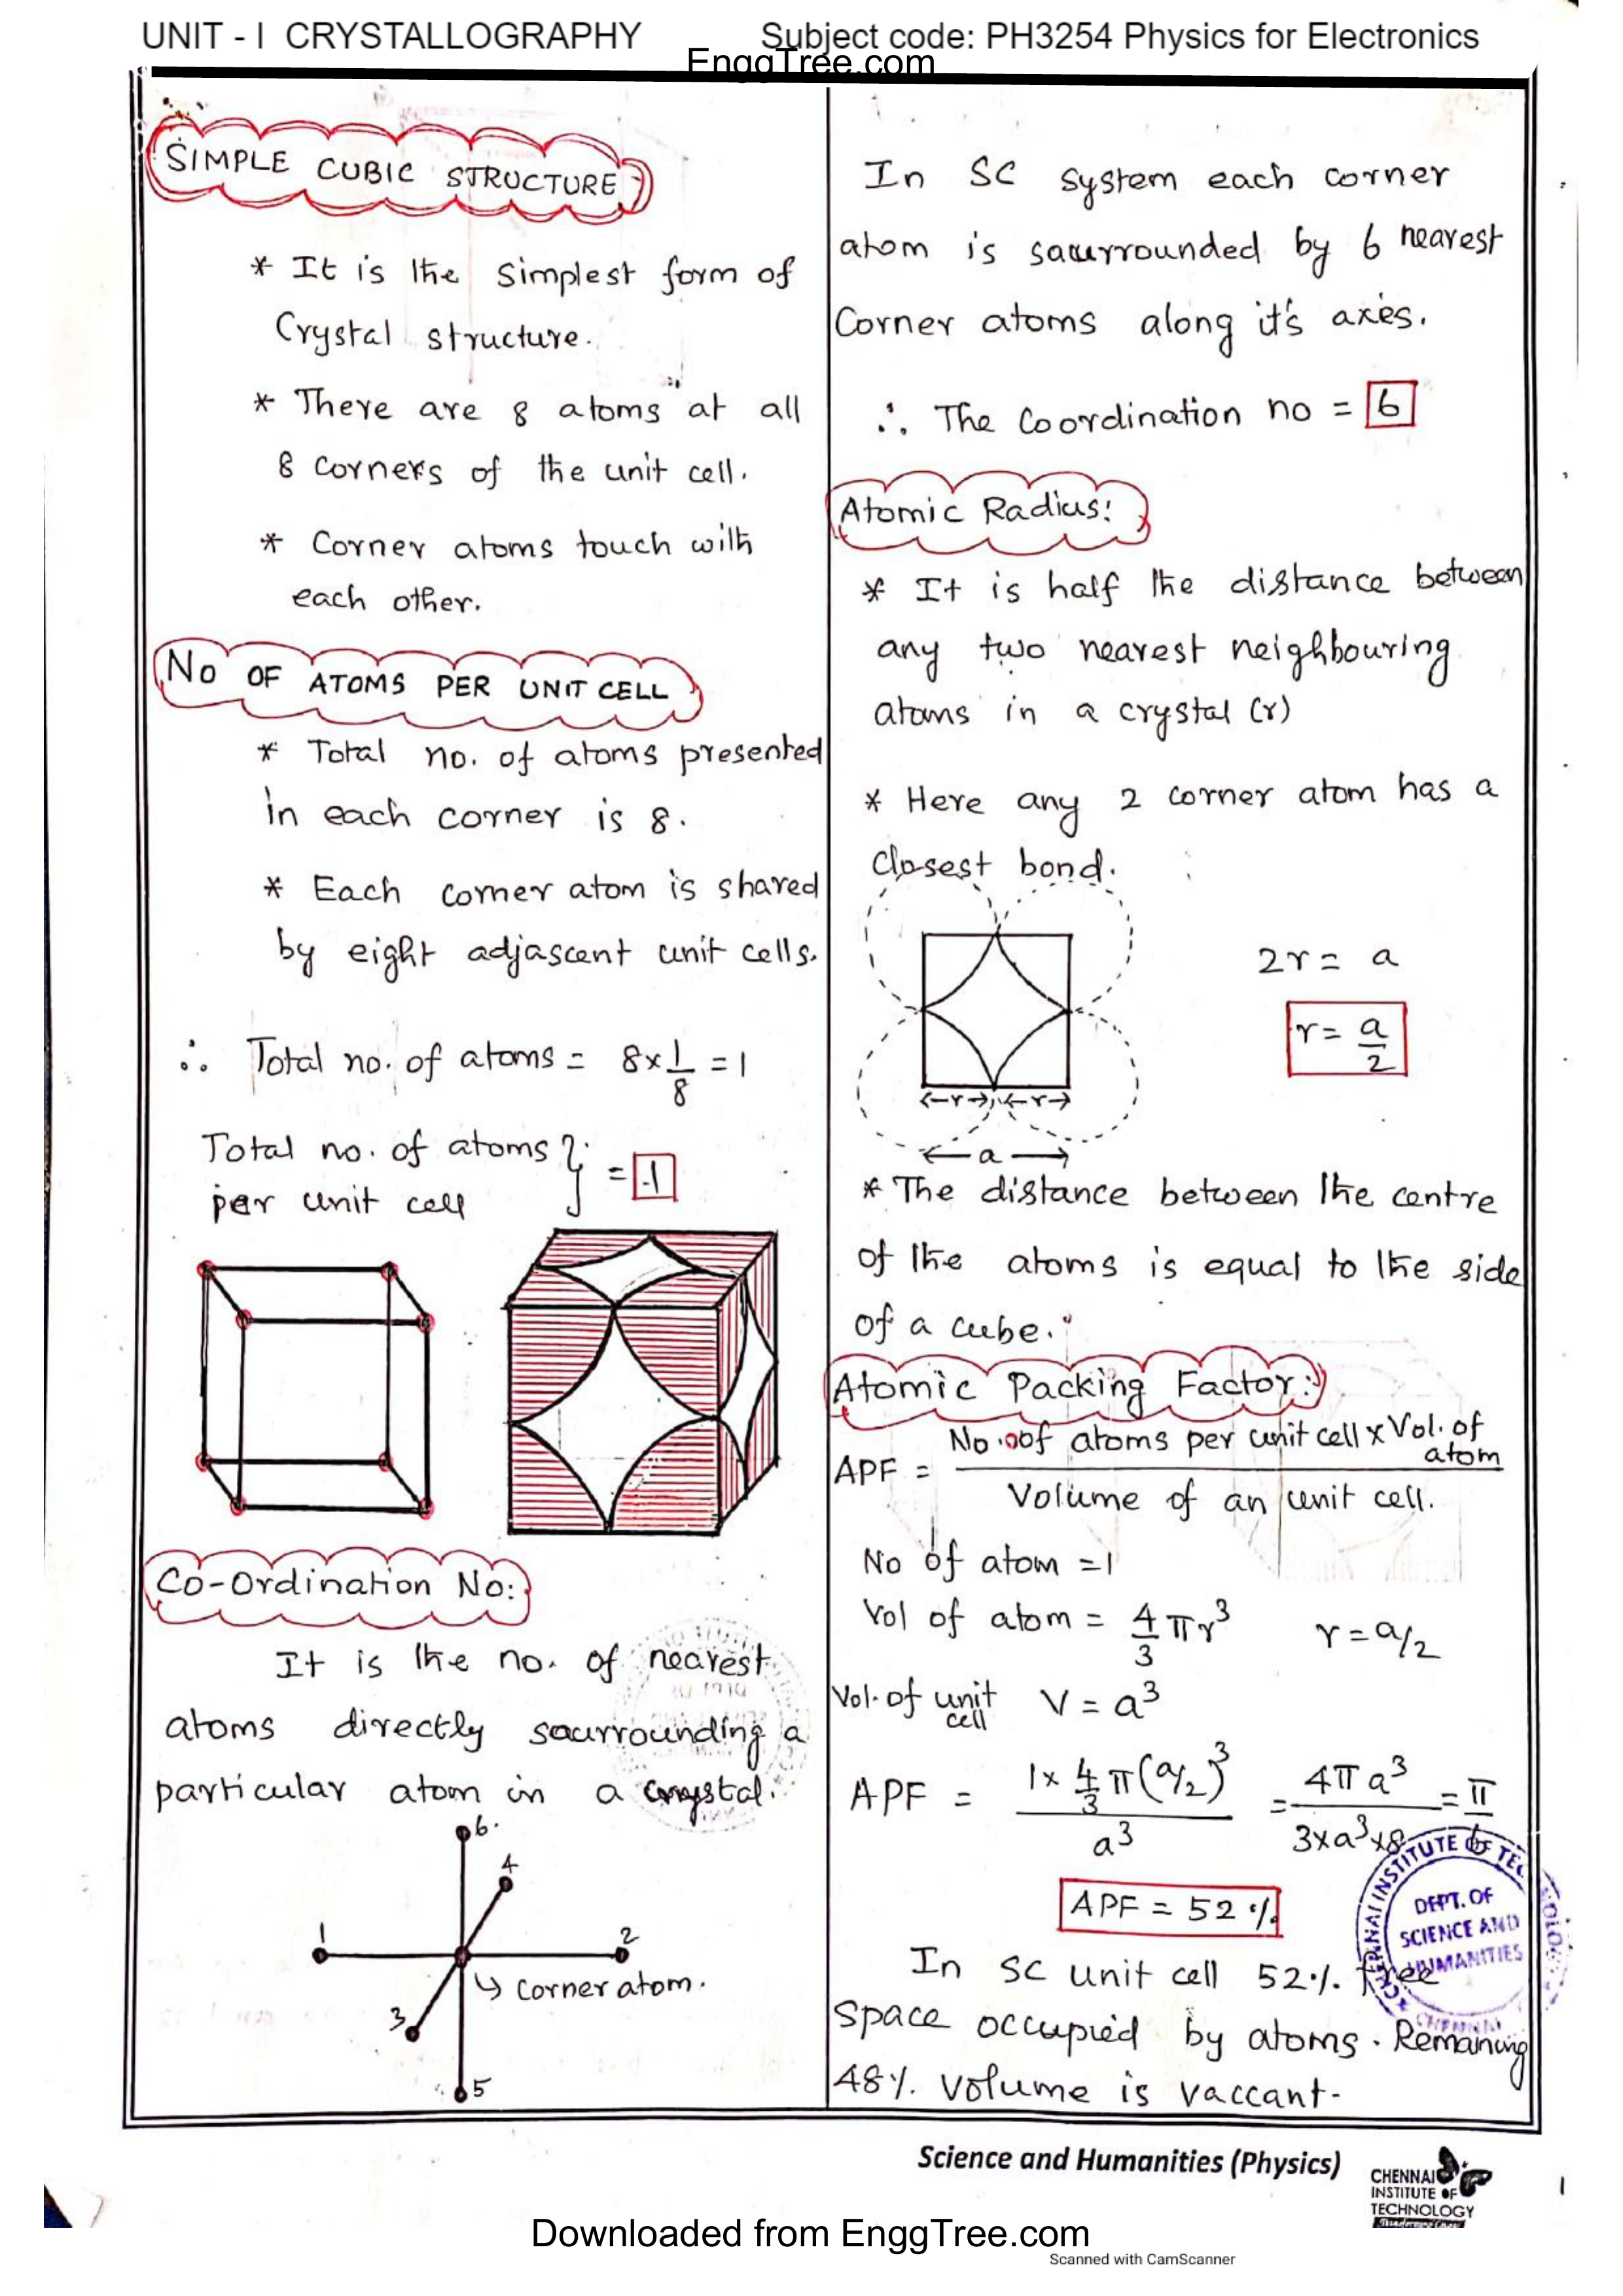 UNIT - I CRYSTALLOGRAPHY Subject code: PH3254 Physics for Electronics
EnggTree.com
SIMPLE CUBIC STRUCTURE
* It is the simplest form of
Crystal structure.
* There are 8 atoms at all
8 corners of the unit cell.
* Corner atoms touch with
each other.
No OF ATOMS PER UNIT CELL
* Total no. of atoms presented
in each corner is 8.
* Each corner atom is shared
by eight adjascent unit cells.
∴ Total no. of atoms = 8×1/8 = 1
Total no. of atoms }
per unit cell = 1
Co-Ordination No:
It is the no. of nearest
atoms directly saurrounding a
particular atom in a crystal.
6.
4
1
2
↳ corner atom.
3
5
In SC system each corner
atom is saurrounded by 6 nearest
Corner atoms along it's axes.
∴ The Coordination no = 6
Atomic Radius:
* It is half the distance between
any two nearest neighbouring
atoms in a crystal (r)
* Here any 2 corner atom has a
closest bond.
2r = a
r = a/2
←r→ ←r→
← a →
* The distance between the centre
of the atoms is equal to the side
of a cube.
Atomic Packing Factor:
APF = No. of atoms per unit cell × Vol. of atom / Volume of an unit cell.
No of atom = 1
Vol of atom = 4/3 πr³ r = a/2
Vol. of unit cell V = a³
APF = 1× 4/3 π(a/2)³ / a³ = 4πa³ / 3×a³×8 = π/6
APF = 52 %
In SC unit cell 52%. free
space occupied by atoms. Remaning
48%. volume is vaccant-
CHENNAI INSTITUTE OF TEC
DEPT. OF
SCIENCE AND
HUMANITIES
CHENNAI
Science and Humanities (Physics)
CHENNAI
INSTITUTE OF
TECHNOLOGY
1
Downloaded from EnggTree.com
Scanned with CamScanner